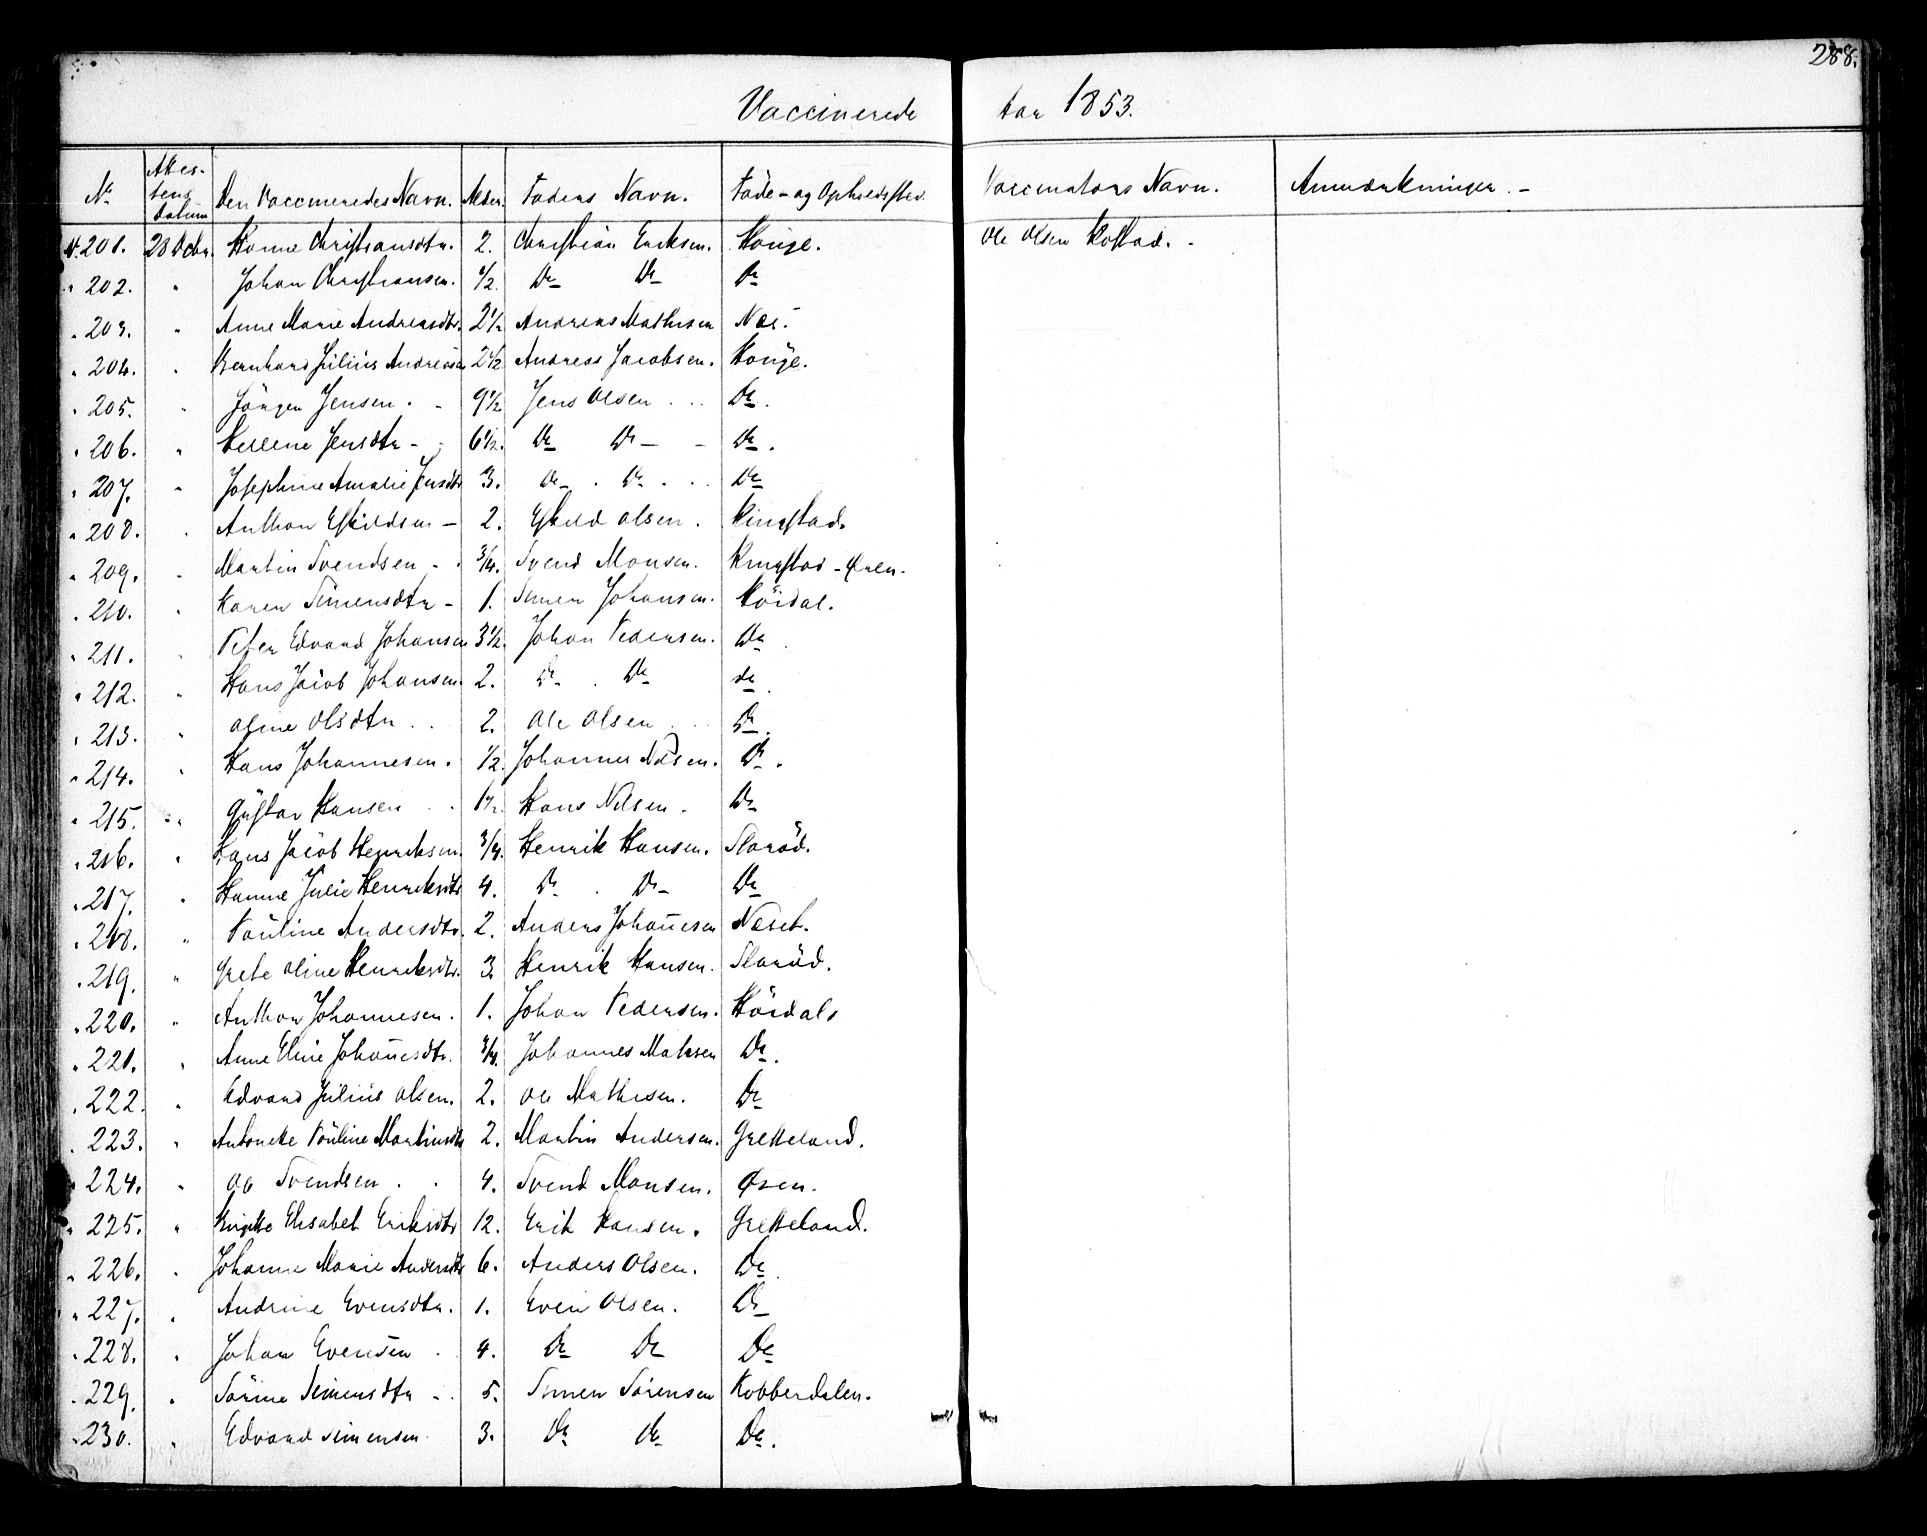 288.
Vaccinerede Aar 1853.
No Attestens Datum Den Vaccineredes Navn. Alder. Faders Navn. Føde- og Opholdssted. Vaccinators Navn. Anmærkninger. -
N. 201. 28 Octbr. Hanne Christiansdtr. 2. Christian Ericksen. Houge. Ole Olsen Kolstad. -
" 202. " Johan Christiansen. 1/2. Do Do Do
" 203. " Anne Marie Andreasdtr. 2 1/2 Andreas Mathisen Næs.
" 204. " Bernhard Julius Andreasen 2 1/2 Andreas Jacobsen. Houge.
" 205. " Jörgen Jensen. - 9 1/2 Jens Olsen . . . Do.
" 206. " Hellene Jensdtr - 6 1/2. Do Do - - Do.
" 207. " Josephine Amalie Jensdtr 3. Do - . Do . . . Do
" 208. " Anthon Eskildsen - 2. Eskild Olsen. Ringstad.
" 209. " Martin Svendsen - . 3/4. Svend Monsen. Ringstad - Øren.
" 210. " Karen Simensdtr - 1. Simen Johansen. Höidal.
" 211. " Peter Edvard Johansen 3 1/2. Johan Pedersen. Do
" 212. " Hans Jacob Johansen. 2. Do . Do do
" 213. " Oline Olsdtr . . 2. Ole Olsen . . Do.
" 214. " Hans Johannesen. 1/2. Johannes Nilsen. Do.
" 215. " Gustav Hansen . . 1 1/2. Hans Nilsen. Do
" 216. " Hans Jacob Henriksen. 3/4. Henrik Hansen. Slaröd.
" 217. " Hanne Julie Henriksdtr 4. Do . Do - Do
" 218. " Pauline Andersdtr. 2. Anders Johanesen Næset.
" 219. " Grete Oline Henriksdtr. 3. Henrik Hansen. Slaröd.
" 220. " Anthon Johannesen. 1. Johan Pedersen. Höidals
" 221. " Anne Eline Johanesdtr. 3/4. Johannes Matisen Do.
" 222. " Edvard Julius Olsen. 2. Ole Mathisen. Do
" 223. " Antonette Pauline Martinsdtr 2. Martin Andersen. Gretteland.
" 224. " Ole Svendsen . . 4. Svend Monsen. Øren.
" 225. " Birgitte Elisabet Eriksdtr 12. Erik Hansen. Gretteland.
" 226. " Johanne Marie Andersdtr 6. Anders Olsen. Do
" 227. " Andrine Evensdtr. 1. Even Olsen. Do
" 228. " Johan Evensen . 4. Do Do Do
" 229. " Sörine Simensdtr - . 5. Simen Sörensen Kobberdalen.
" 230. " Edvard Simensen. 3. Do do Do.